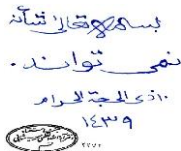 بسمه تعالی شأنه
نمی تواند.
۱۰ ذی الحجة الحرام
۱۴۳۹
۲۲۷۰